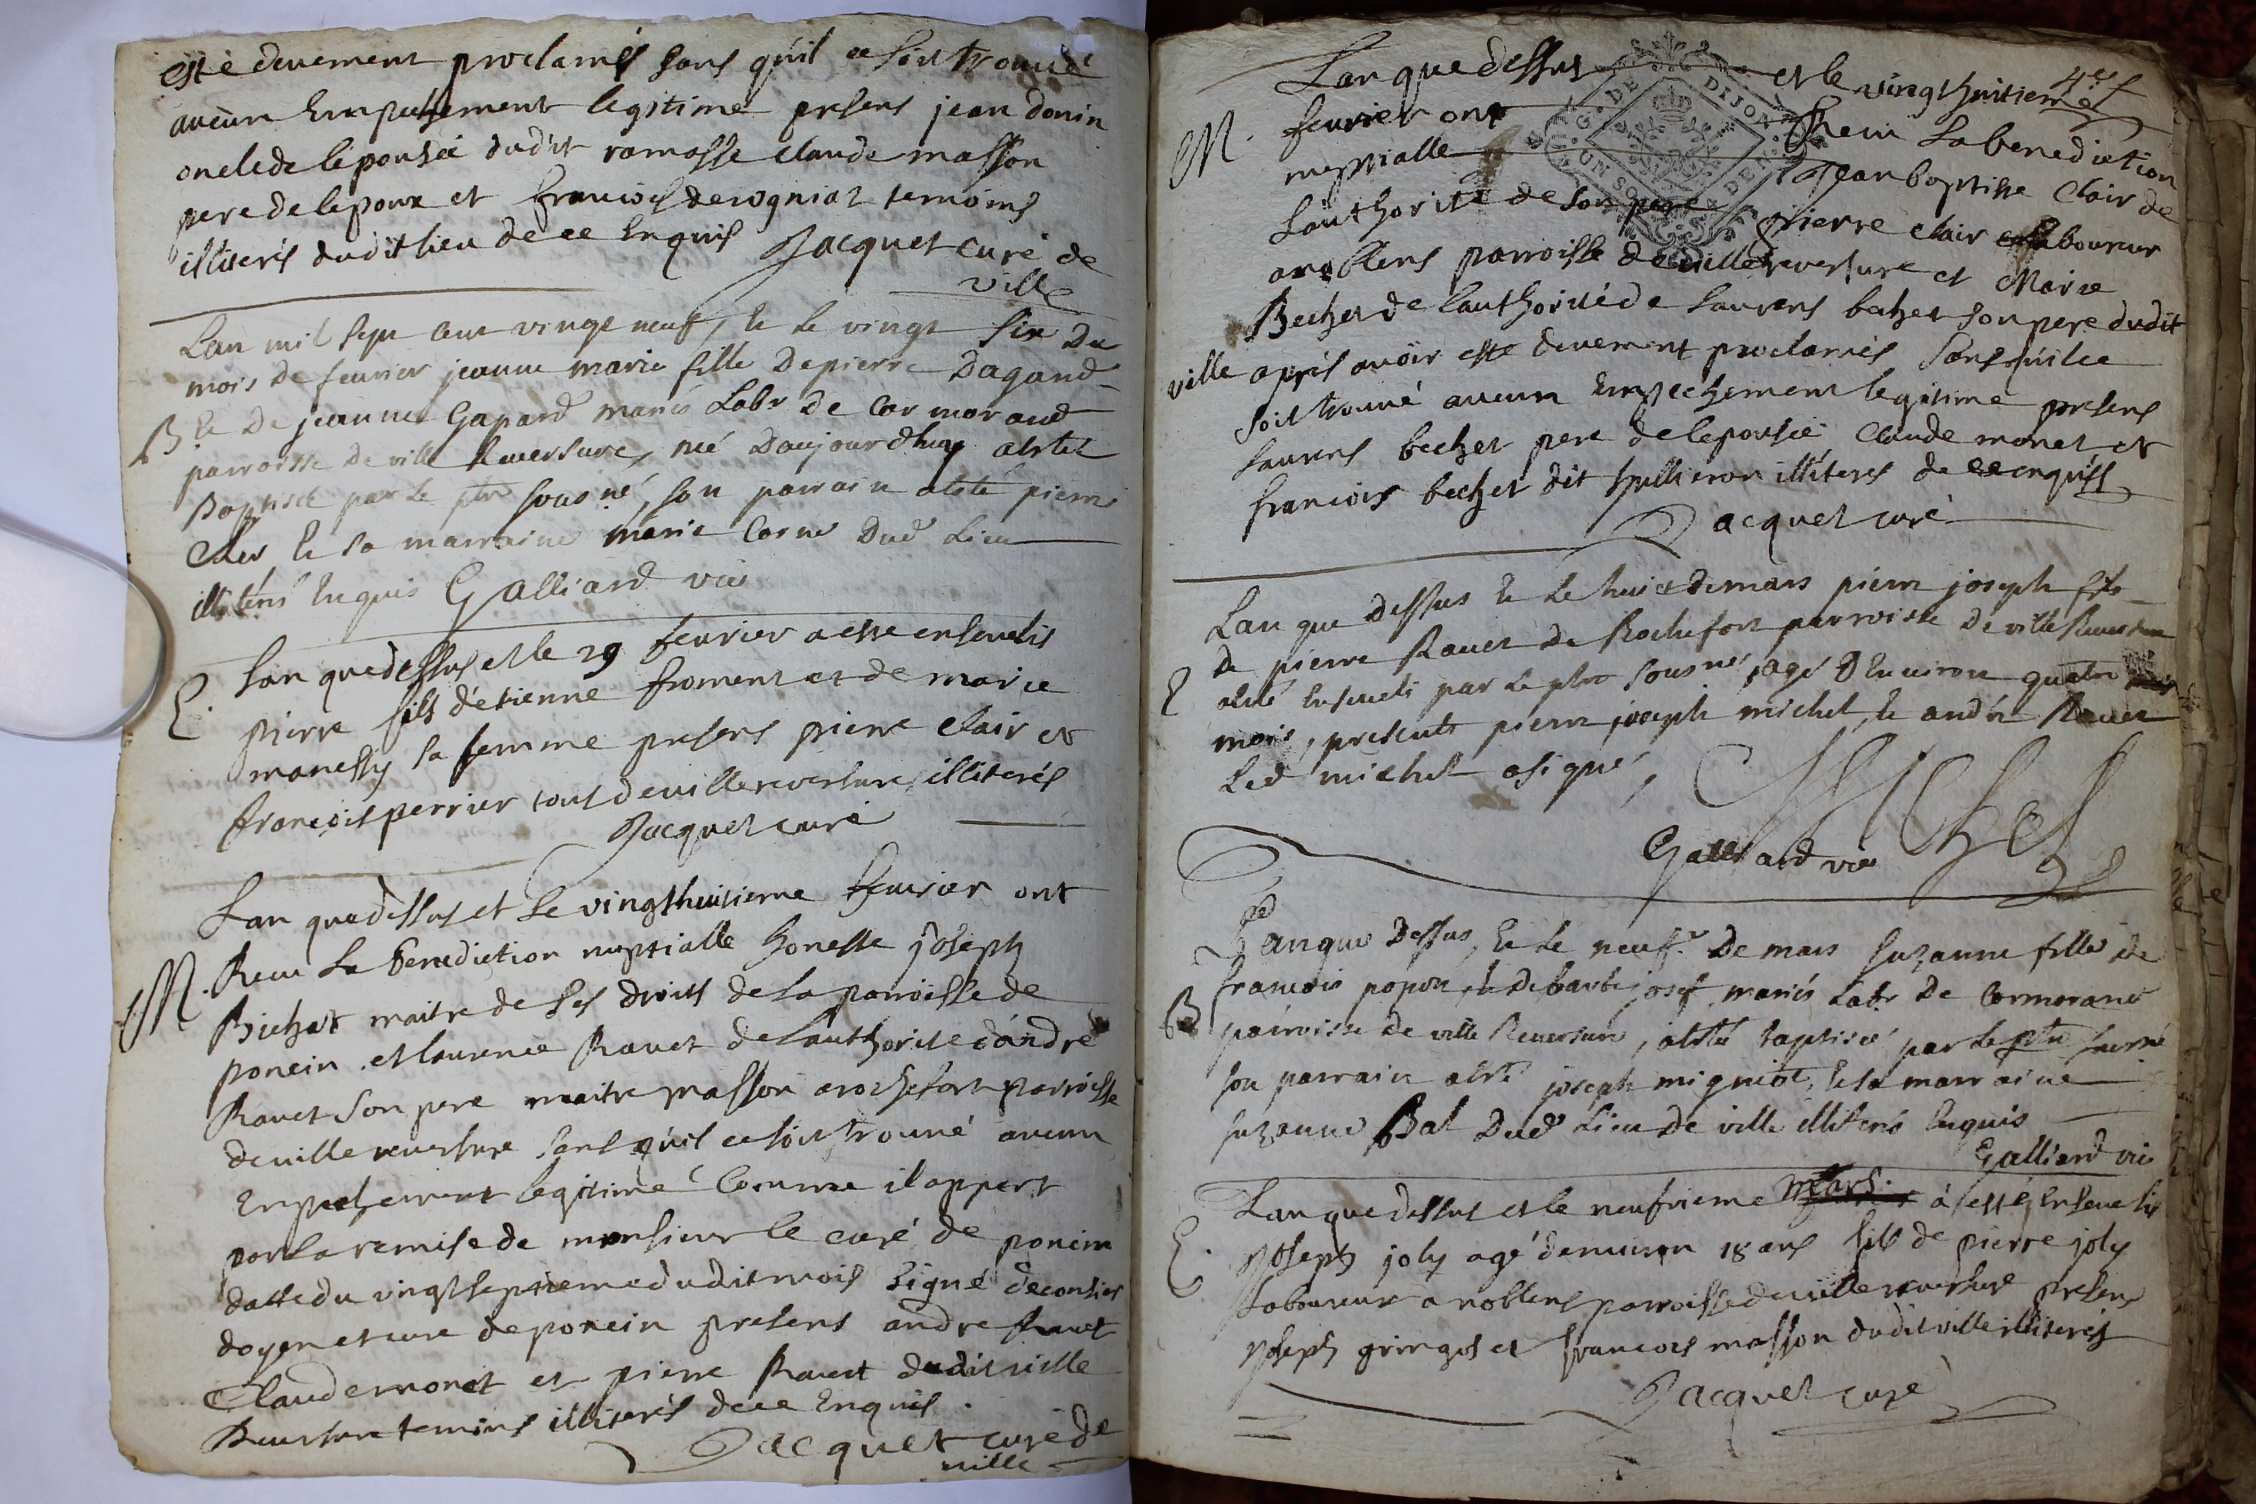 esté deuement proclamés sans qu'il ce soit trouué
aucun Empechement legitime presens jean donin
oncle de lepousée dudit ramasse claude masson
pere de lepoux et francois derogniat temoins
illiterés dudit lieu de ce Enquis Jacquet curé de
ville
Lan mil sept cent vingt neuff, et le vingt six du
mois de feurier jeanne marie fille de pierre Dagand
B. et de jeanne Gapard mariés Labr de Cormorand
parroisse de ville Reuersure, née daujourdhuy aetté
Baptisée par le ptre sousné, son parrain aetté pierre
et sa marraine marie Corne Dud Lieu
illiterés Enquis Galliard vic
Lan que dessus et le 29 feurier a este enseuelis
E. pierre fils d'étienne froment et de marie
manessy sa femme presens pierre clair et
françois perrier tous de villereuersure illiterés
Jacquet curé
Lan que dessus et le vingthuitieme feurier ont
M. Receu La benediction nuptialle honeste joseph
Bichat maitre de ses droits de la parroisse de
poncin et laurence Rauet de l'authorité d'andré
Rauet son pere maitre masson a rochefort parroisse
de ville reuersure sans qu'il ce soit trouué aucun
Empechement legitime Comme il appert
par la remise de monsieur le curé de poncin
datte du vingtseptieme dudit mois signé
doyen et curé de poncin presens andre Rauet
Claude monet et pierre Rauet dudit ville
Reuersure temoins illiterés de ce Enquis.
Jacquet curé de
ville
Lan que dessus et le vingthuitieme
M. feurier ont Receu La benediction
nuptialle Jean baptiste Clair de
Lauthorité de son pere pierre clair laboureur
a noblens parroisse de villereuersure et Marie
Bechet de l'authorité de Laurens bechet son pere dudit
ville après auoir esté deuement proclamés sans qu'il ce
soit trouué aucun Empechement legitime presens
Laurens bechet pere de lepousée Claude monet et
francois bechet dit illiterés de ce enquis
Jacquet curé
Lan que dessus et le huict de mars pierre joseph fils
de pierre Rauet de Rochefort parroisse de ville Reuersure
E aetté Enseueli par le ptre sousné, agé d'Enuiron quatre
mois, presents pierre joseph michel, et andré Rauet
Led michel a signé,
Michel
Galliard vic
Lan que Dessus, et le neuff De mars suzanne fille de
B francois popon, et de barbe josef mariés Labr de Cormorand
parroisse de ville Reuersure, aetté baptisée par le ptre sousné
son parrain aetté joseph migniot, et sa marraine
suzanne Bal Dud Lieu de ville illiterés Enquis
Galliard vic
Lan que dessus et le neufuieme mars à esté Enseuelis
E. joseph joly agé d'enuiron 18 ans fils de pierre joly
laboureur a noblens parroisse de ville reuersure presens
joseph gringos et francois masson dudit ville illiterés
Jacquet curé